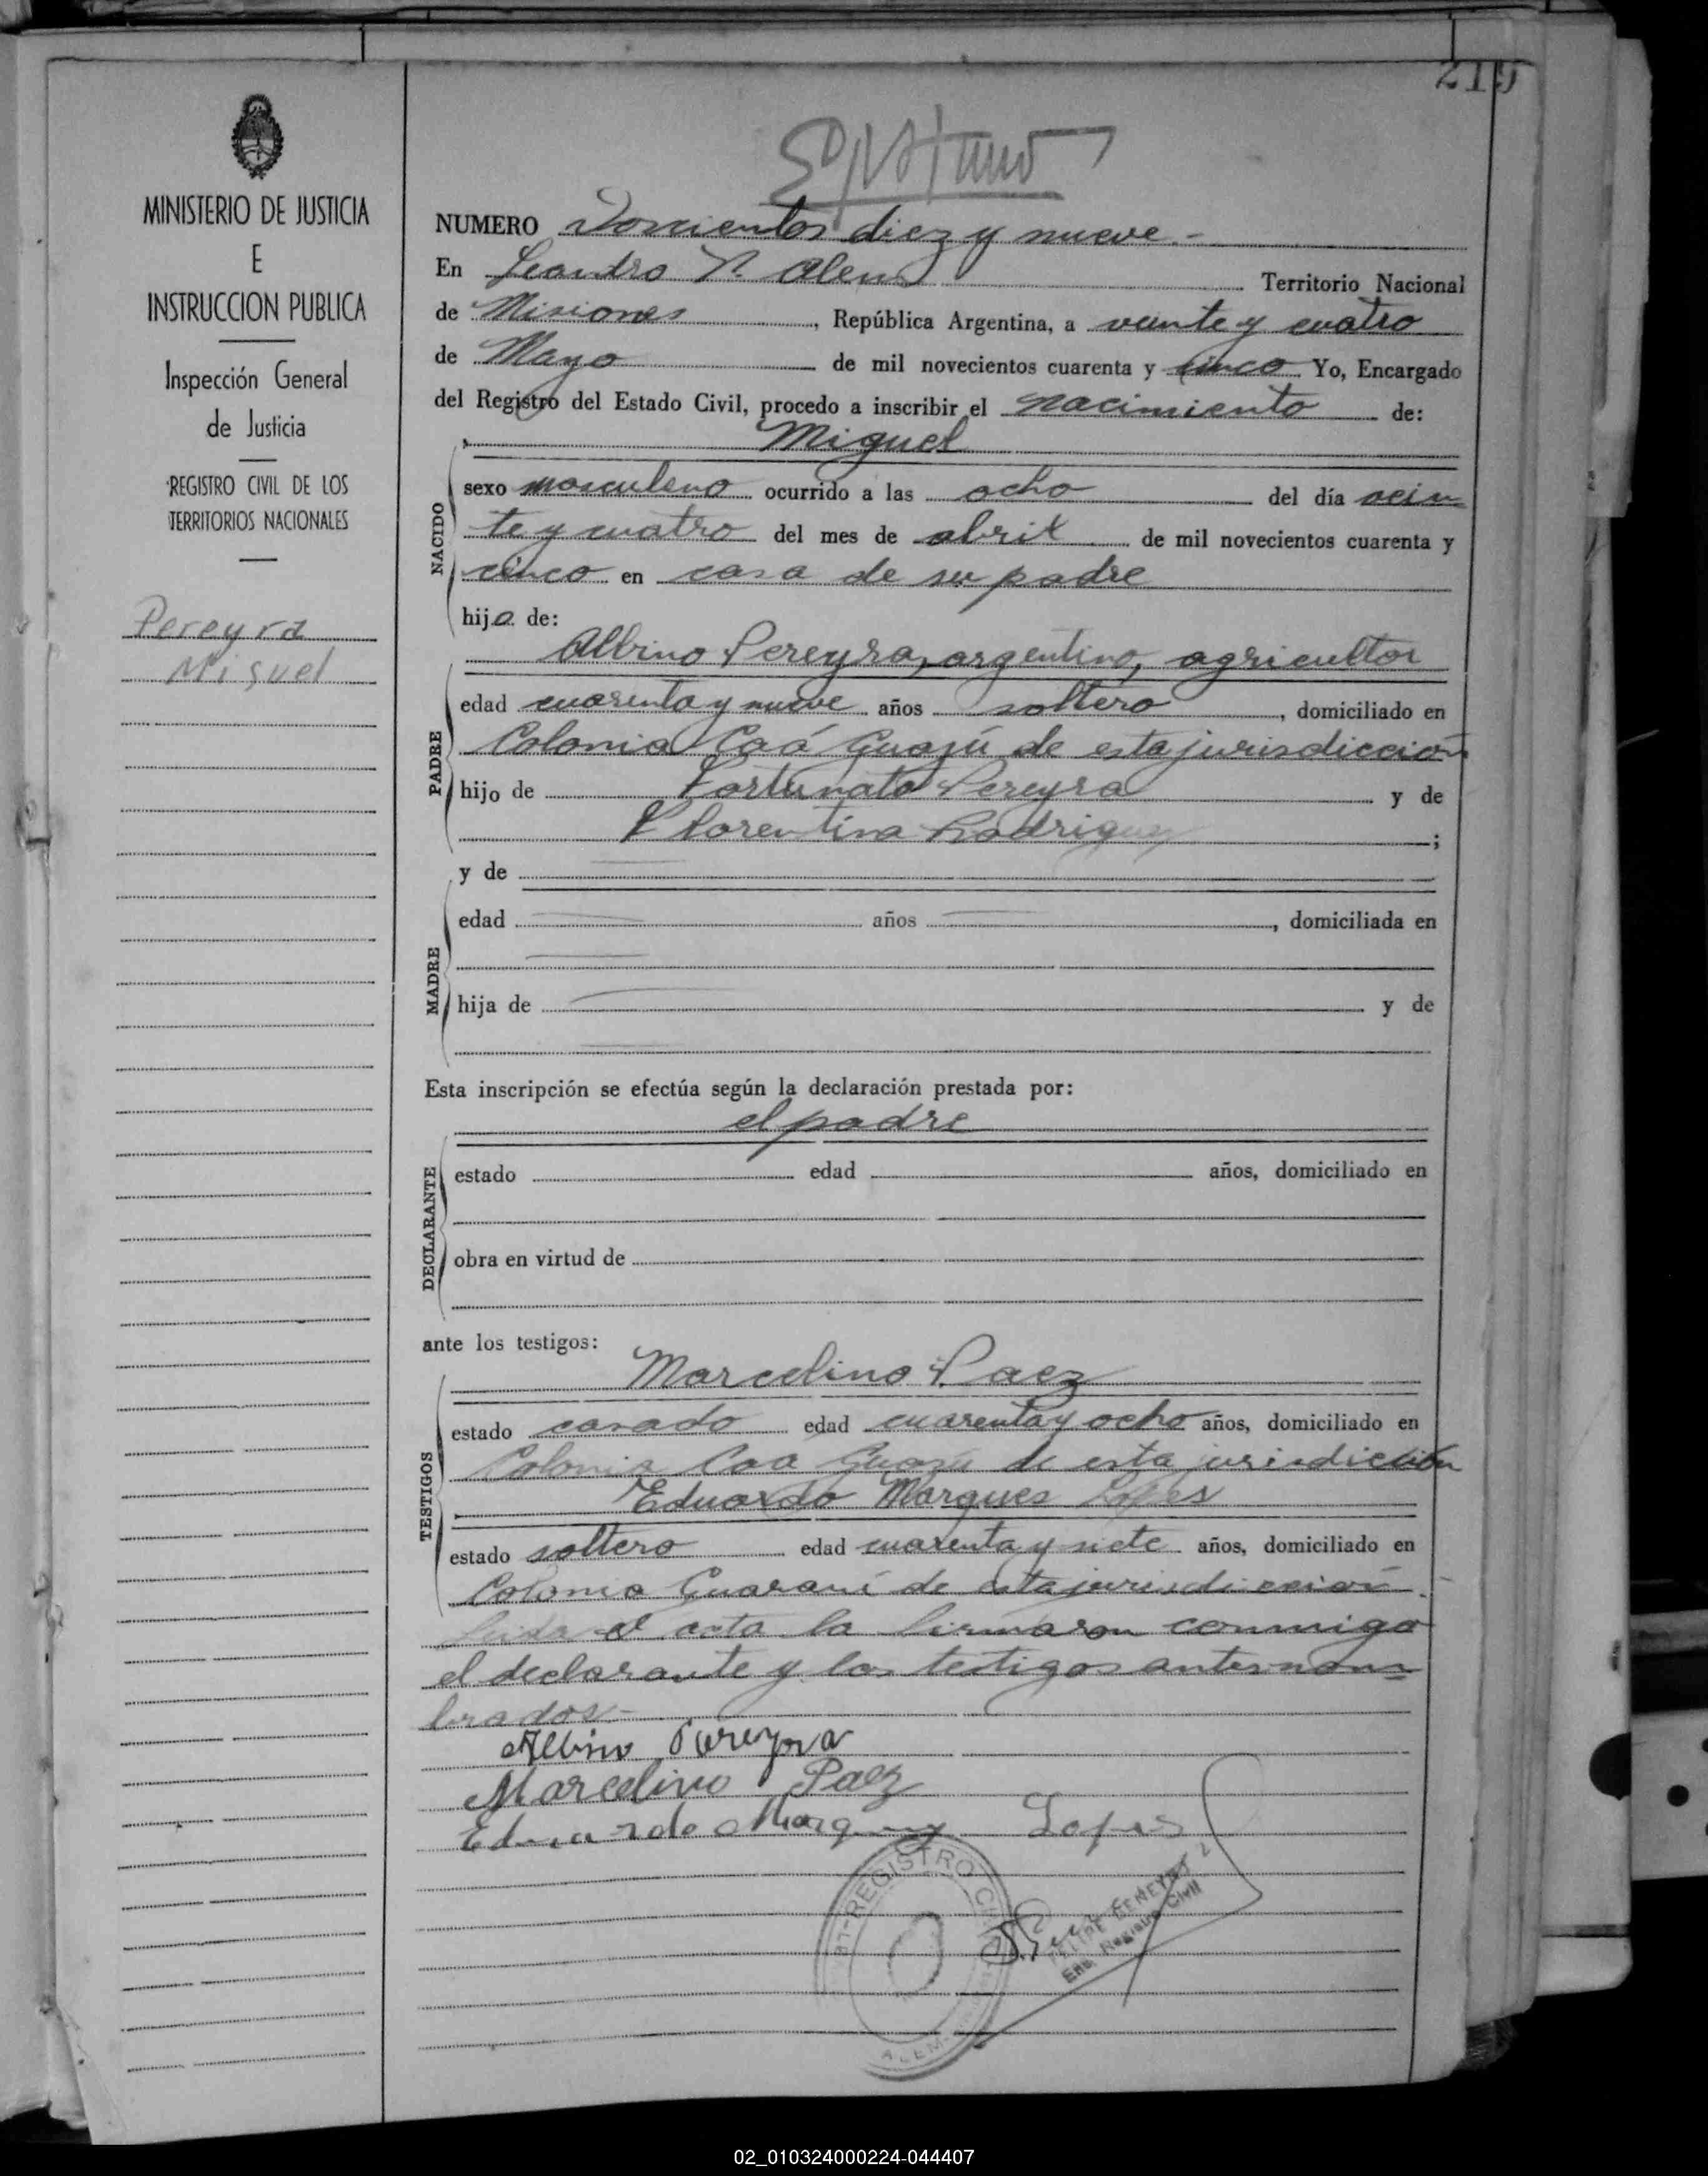 219
MINISTERIO DE JUSTICIA
E
INSTRUCCION PUBLICA
Inspección General
de Justicia
REGISTRO CIVIL DE LOS
TERRITORIOS NACIONALES
Pereyra
Miguel
NUMERO Doscientos diez y nueve.-
En Leandro N. Alem Territorio Nacional
de Misiones, República Argentina, a veinte y cuatro
de Mayo de mil novecientos cuarenta y cinco Yo, Encargado
del Registro del Estado Civil, procedo a inscribir el nacimiento de:
Miguel
NACIDO
sexo masculino ocurrido a las ocho del día vein
te y cuatro del mes de abril de mil novecientos cuarenta y
cinco en casa de su padre
hijo de:
Albino Pereyra, argentino, agricultor
PADRE
edad cuarenta y nueve años soltero, domiciliado en
Colonia Caá Guazú de esta jurisdicción
hijo de Fortunato Pereyra y de
Florentina Rodriguez;
y de
MADRE
edad años, domiciliada en
hija de y de
Esta inscripción se efectúa según la declaración prestada por:
el padre
DECLARANTE
estado edad años, domiciliado en
obra en virtud de
ante los testigos:
Marcelino Paez
TESTIGOS
estado casado edad cuarenta y ocho años, domiciliado en
Colonia Caa Guazu de esta jurisdicción
Eduardo Marques Lopes
estado soltero edad cuarenta y siete años, domiciliado en
Colonia Guaraní de esta jurisdicción.-
Leida el acta la firmaron conmigo
el declarante y los testigos antes nom=
brados.-
Albino Pereyra
Marcelino Paez
Eduardo Marques Lopes
REGISTRO CIVIL
ALEM
Enc. Registro Civil
02_010324000224-044407